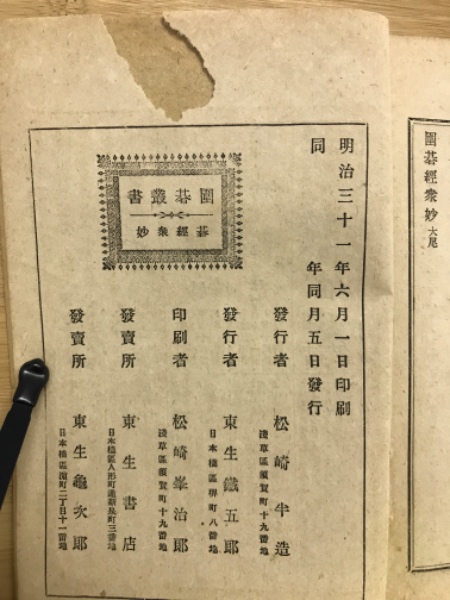 圍碁經衆妙 大尾
明治三十一年六月一日印刷
同 年同月五日發行
圍碁叢書
碁經衆妙
發行者 松崎半造
淺草區須賀町十九番地
發行者 東生鐵五郎
日本橋區堺町八番地
印刷者 松崎峯治郎
淺草區須賀町十九番地
發賣所 東生書店
日本橋區人形町通新泉町三番地
發賣所 東生龜次郎
日本橋區濵町二丁目十一番地